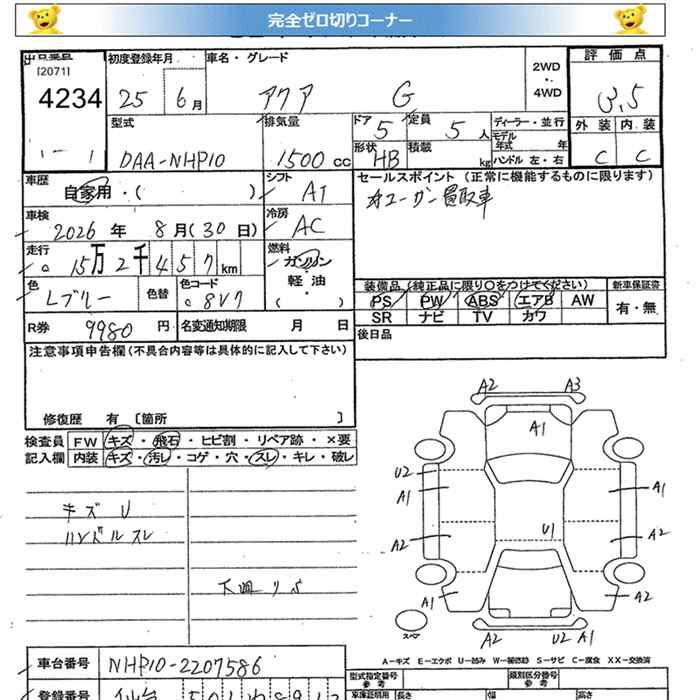 完全ゼロ切りコーナー
[2071]
4234
初度登録年月
25 6月
車名・グレード
アクア G
2WD
・
4WD
評価点
3.5
外装 内装
C C
型式
DAA-NHP10
排気量
1500cc
ドア 5
定員 5人
形状 HB
積載 kg
ディーラー・並行
モデル年式 年
ハンドル 左・右
車歴
自家用・( )
シフト
AT
セールスポイント (正常に機能するものに限ります)
オユーザー買取車
車検
2026年 8月(30日)
冷房
AC
走行
15万2千457km
燃料
ガソリン
・
軽油
( )
色
Lブルー
色替
色コード
8V7
装備品(純正品に限り○をつけてください)
新車保証書
PS PW ABS エアB AW
SR ナビ TV カワ
有・無
R券 9980円
名変通知期限 月 日
後日品
注意事項申告欄(不具合内容等は具体的に記入して下さい)
修復歴 有 〔箇所 〕
検査員記入欄
FW キズ・飛石・ヒビ割・リペア跡・×要
内装 キズ・汚レ・コゲ・穴・スレ・キレ・破レ
キズ U
ハンドルスレ
下廻りS
A2 A3
A1
U2
A1 A1
U1
A2 A2
A1 A2
スペア
A2 U2 A1
A-キズ E-エクボ U-凹み W-補修跡 S-サビ C-腐食 XX-交換済
車台番号 NHP10-2207586
登録番号 仙台
型式指定番号
参考
類別区分番号
参考
車庫証明用
長さ 幅 高さ